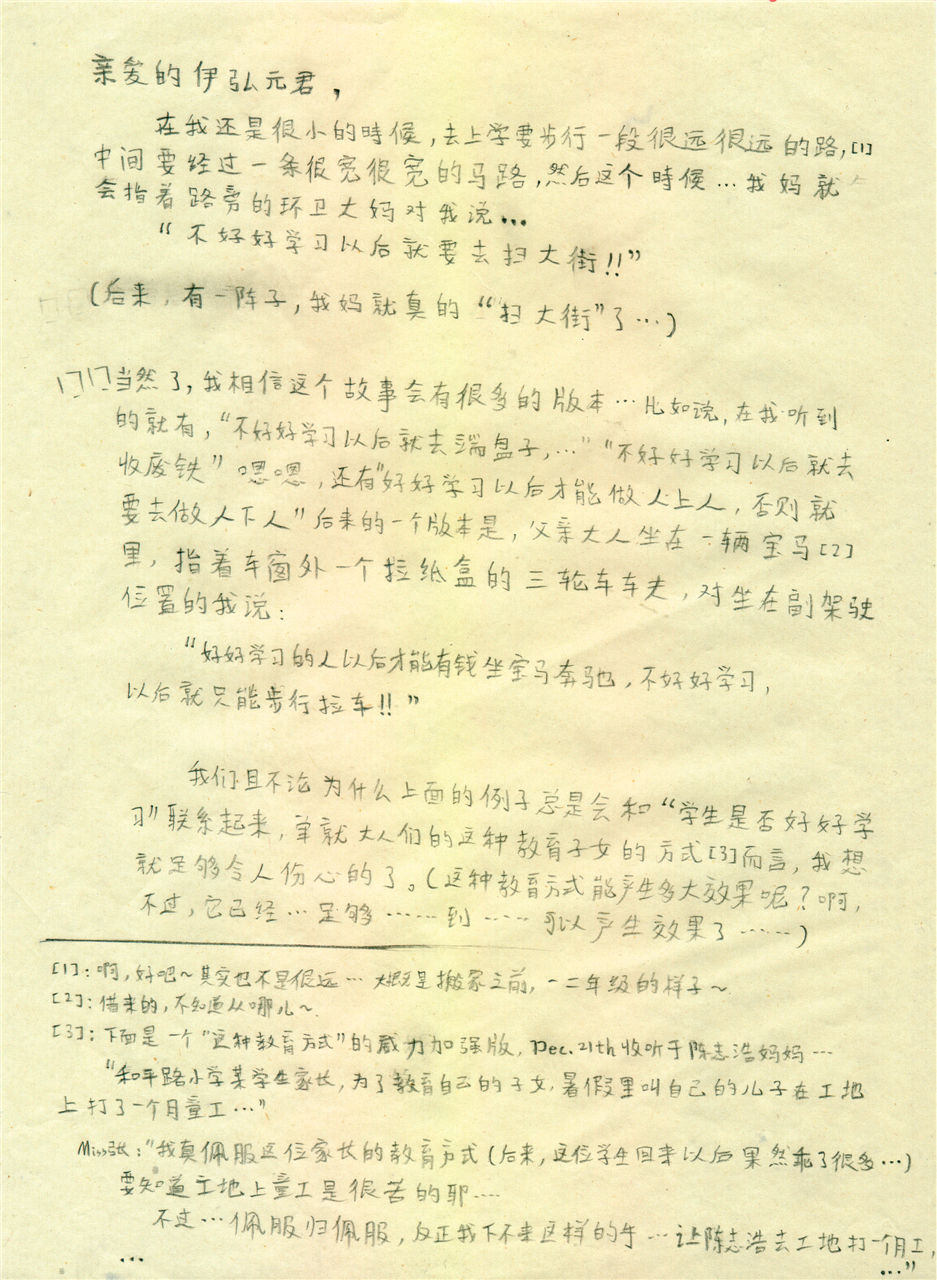 亲爱的伊弘元君，
在我还是很小的時候，去上学要步行一段很远很远的路，[1]
中间要经过一条很宽很宽的马路，然后这个時候…我妈就
会指着路旁的环卫大妈对我说…
“不好好学习以后就要去扫大街!!”
(后来，有一阵子，我妈就真的“扫大街”了…)
当然了，我相信这个故事会有很多的版本…比如说，在我听到
的就有，“不好好学习以后就去端盘子，…”“不好好学习以后就去
收废铁”嗯嗯，还有“好好学习以后才能做人上人，否则就
要去做人下人”后来的一个版本是，父亲大人坐在一辆宝马[2]
里，指着车窗外一个拉纸盒的三轮车车夫，对坐在副架驶
位置的我说：
“好好学习的人以后才能有钱坐宝马奔驰，不好好学习，
以后就只能步行拉车!!”
我们且不论为什么上面的例子总是会和“学生是否好好学
习”联系起来，单就大人们的这种教育子女的方式[3]而言，我想
就足够令人伤心的了。(这种教育方式能产生多大效果呢？啊，
不过，它已经…足够……到……可以产生效果了……)
[1]：啊，好吧~其实也不是很远…大概是搬家之前，一二年级的样子~
[2]：借来的，不知道从哪儿~
[3]：下面是一个“这种教育方式”的威力加强版，Dec.21th收听于陈志浩妈妈…
“和平路小学某学生家长，为了教育自己的子女，暑假里叫自己的儿子在工地
上打了一个月童工…”
Miss张：“我真佩服这位家长的教育方式(后来，这位学生回来以后果然乖了很多…)
要知道工地上童工是很苦的耶……
不过…佩服归佩服，反正我下不来这样的手…让陈志浩去工地打一个月工，
…
…”